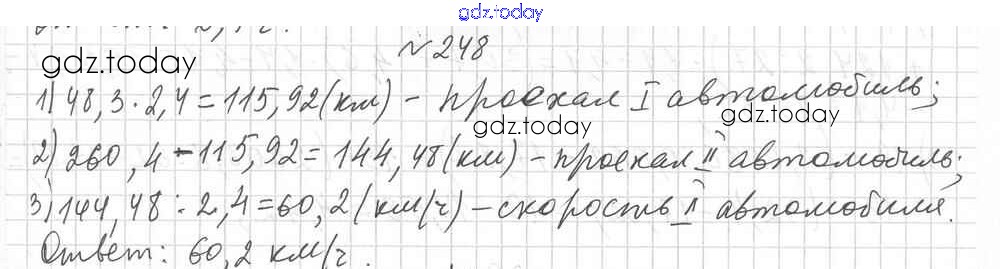 gdz.today
№ 248
gdz.today
1) 48,3 · 2,4 = 115,92 (км) – проехал I автомобиль;
gdz.today
gdz.today
2) 260,4 – 115,92 = 144,48 (км) – проехал II автомобиль;
3) 144,48 : 2,4 = 60,2 (км/ч) – скорость II автомобиля.
Ответ: 60,2 км/ч.